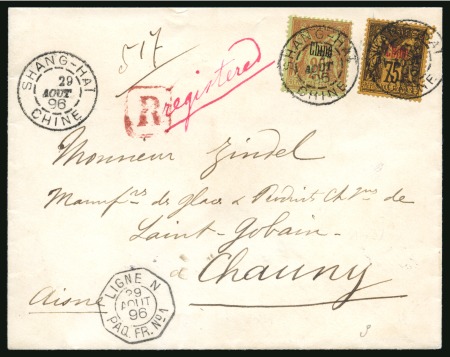 517
Chine
Chine
75
SHANG-HAI
29
AOUT
96
CHINE
SHANG-HAI
AOUT
96
CHINE
R
registered
Monsieur Zindel
Manuf^res de glaces & Produits Ch^ques de
Saint-Gobain
à Chauny
Aisne
LIGNE N
29
AOUT
96
PAQ. FR. No 1